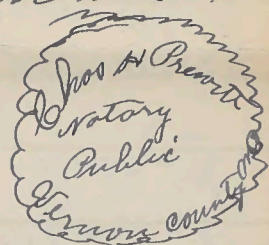 Chas H Prewitt
Notary
Public
Vernon County Mo